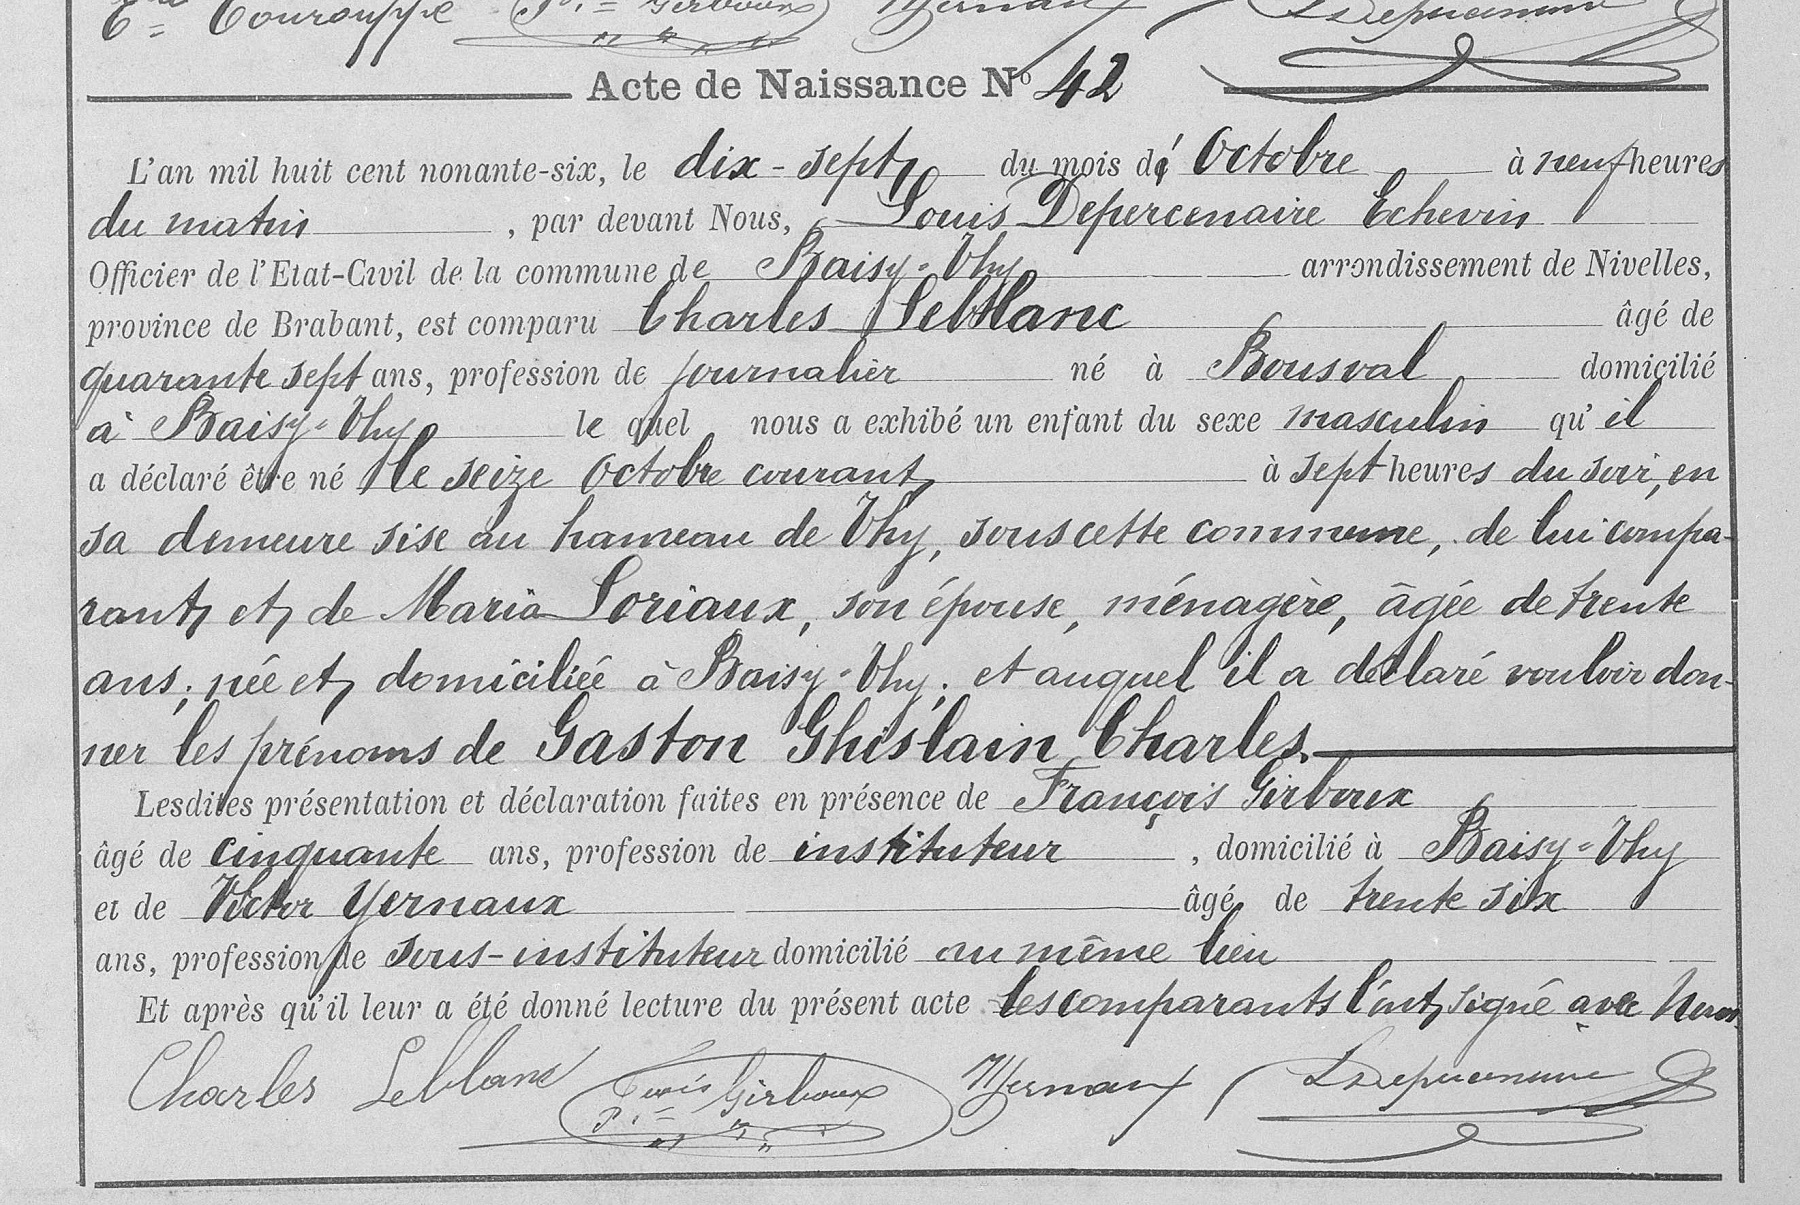 Acte de Naissance N° 42
L'an mil huit cent nonante-six, le dix-sept du mois d' Octobre à neuf heures
du matin , par devant Nous, Louis Depercenaire Echevin
Officier de l'Etat-Civil de la commune de Baisy-Thy arrondissement de Nivelles,
province de Brabant, est comparu Charles Leblanc âgé de
quarante sept ans, profession de journalier né à Bousval domicilié
à Baisy-Thy le quel nous a exhibé un enfant du sexe masculin qu'il
a déclaré être né le seize Octobre courant à sept heures du soir, en
sa demeure sise au hameau de Thy, sous cette commune, de lui compa-
rant et de Maria Loriaux, son épouse, ménagère, âgée de trente
ans, née et domiciliée à Baisy-Thy; et auquel il a déclaré vouloir don-
ner les prénoms de Gaston Ghislain Charles
Lesdites présentation et déclaration faites en présence de François Girboux
âgé de cinquante ans, profession de instituteur , domicilié à Baisy-Thy
et de Victor Yernaux âgé de trente six
ans, profession de sous-instituteur domicilié au même lieu
Et après qu'il leur a été donné lecture du présent acte les comparants l'ont signé avec Nous.
Charles Leblanc Girboux VYernaux LDepercenaire